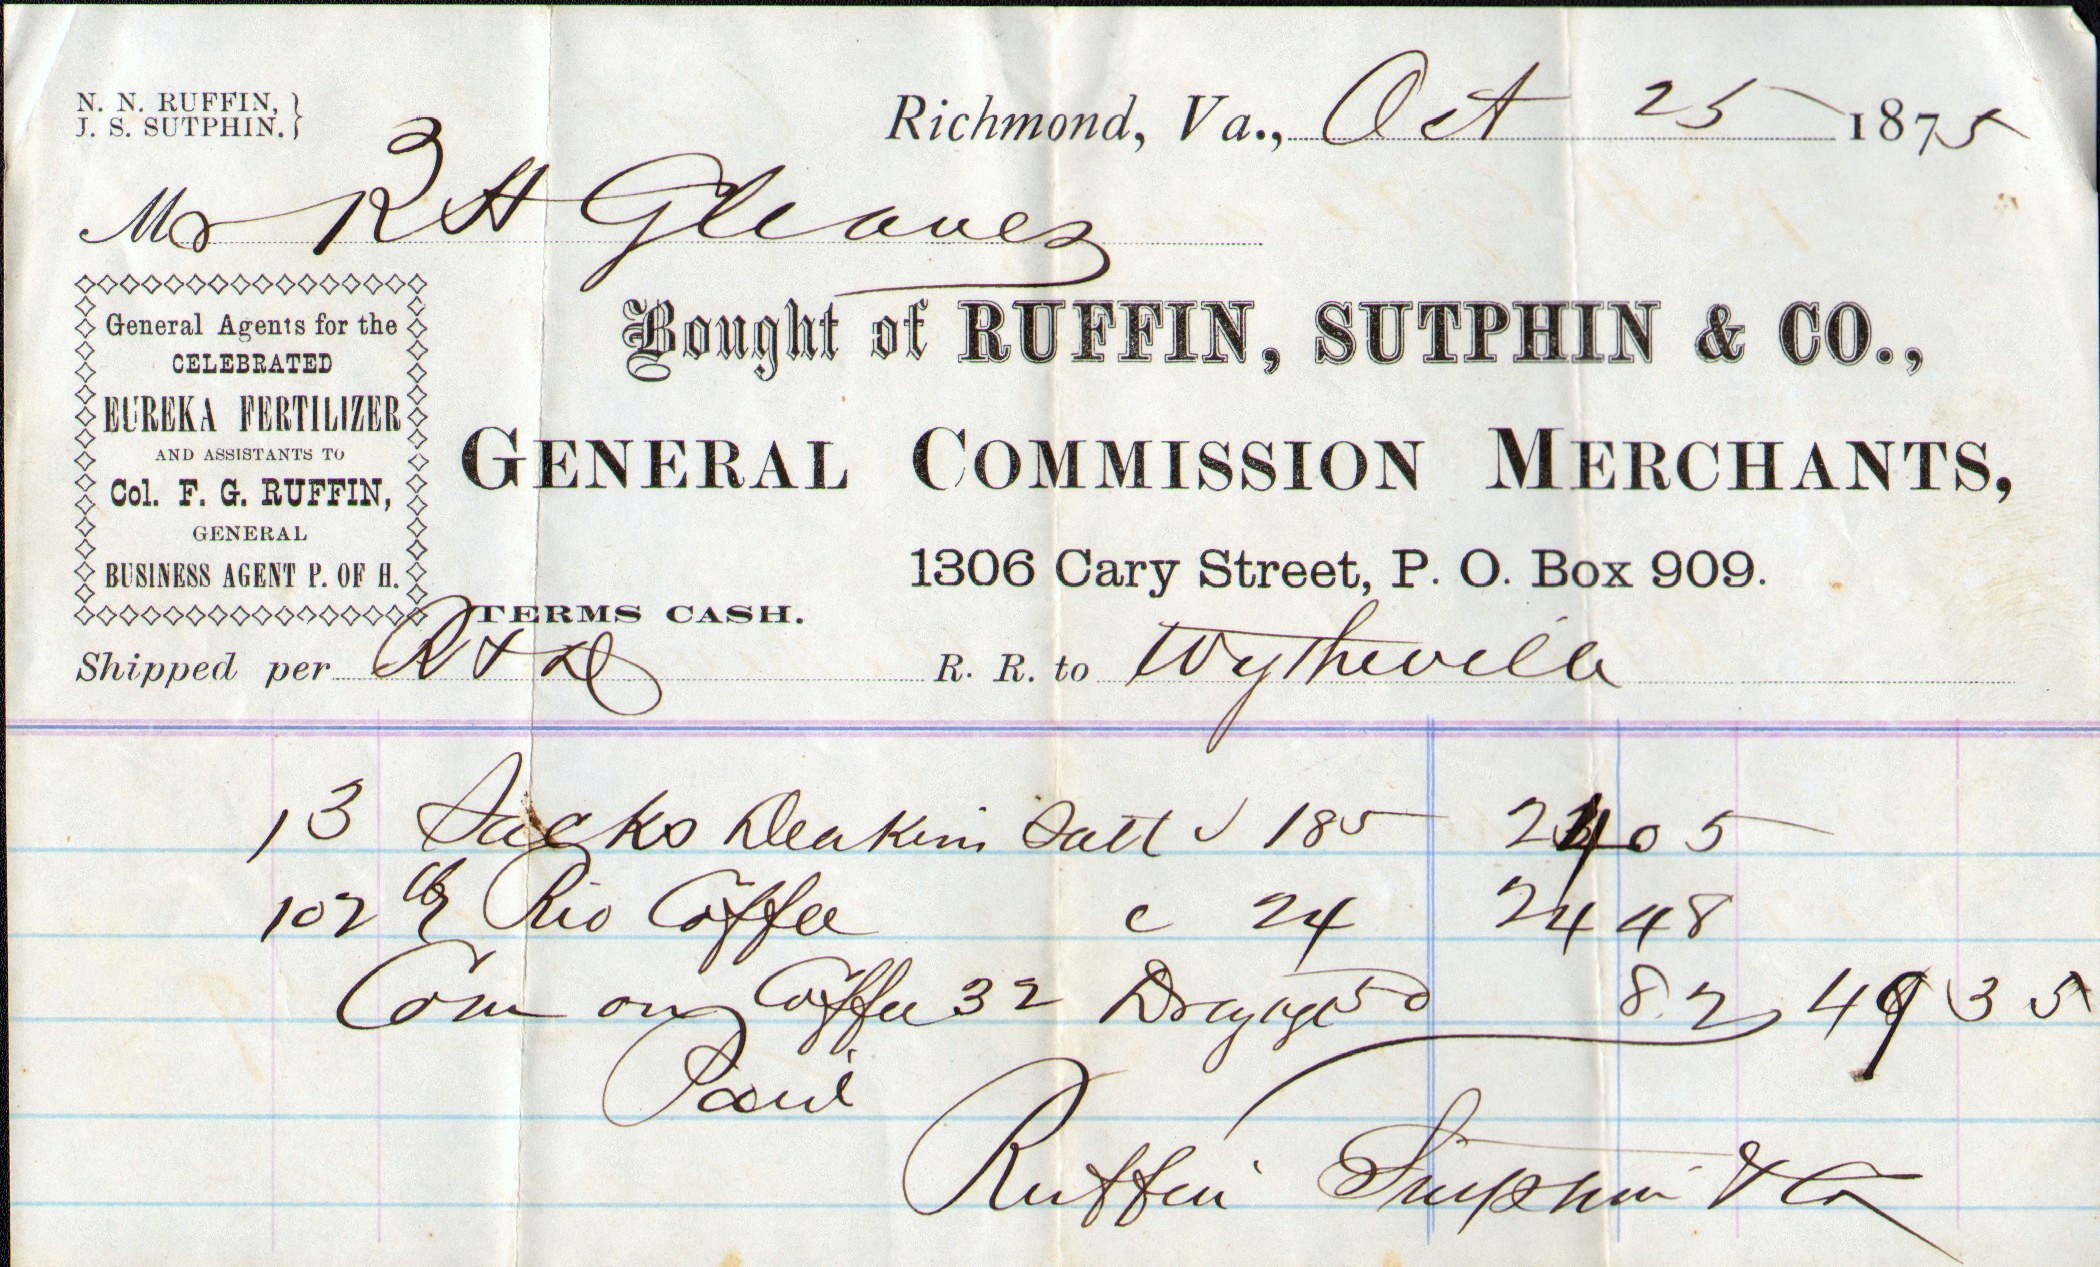 N. N. RUFFIN, }
J. S. SUTPHIN. }
Richmond, Va., Oct 25 1875
Mr R H Gleaves
General Agents for the
CELEBRATED
EUREKA FERTILIZER
AND ASSISTANTS TO
Col. F. G. RUFFIN,
GENERAL
BUSINESS AGENT P. OF H.
Bought of RUFFIN, SUTPHIN & CO.,
GENERAL COMMISSION MERCHANTS,
1306 Cary Street, P. O. Box 909.
TERMS CASH.
Shipped per R & D R. R. to Wytheville
13 Sacks Deakin Salt 185 24 05
102 lbs Rio Coffee c 24 24 48
Com on Coffee 32 Drayage 50 82 49 35
Paid
Ruffin Sutphin & Co